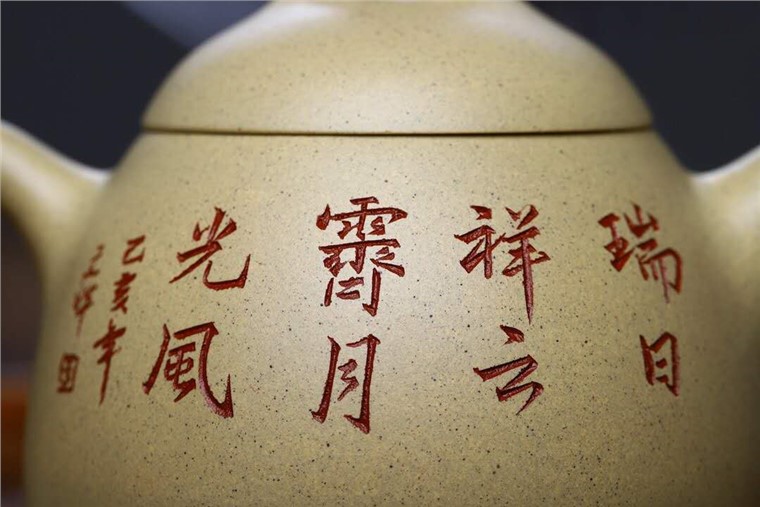 瑞日
祥云
霽月
光風
乙亥年